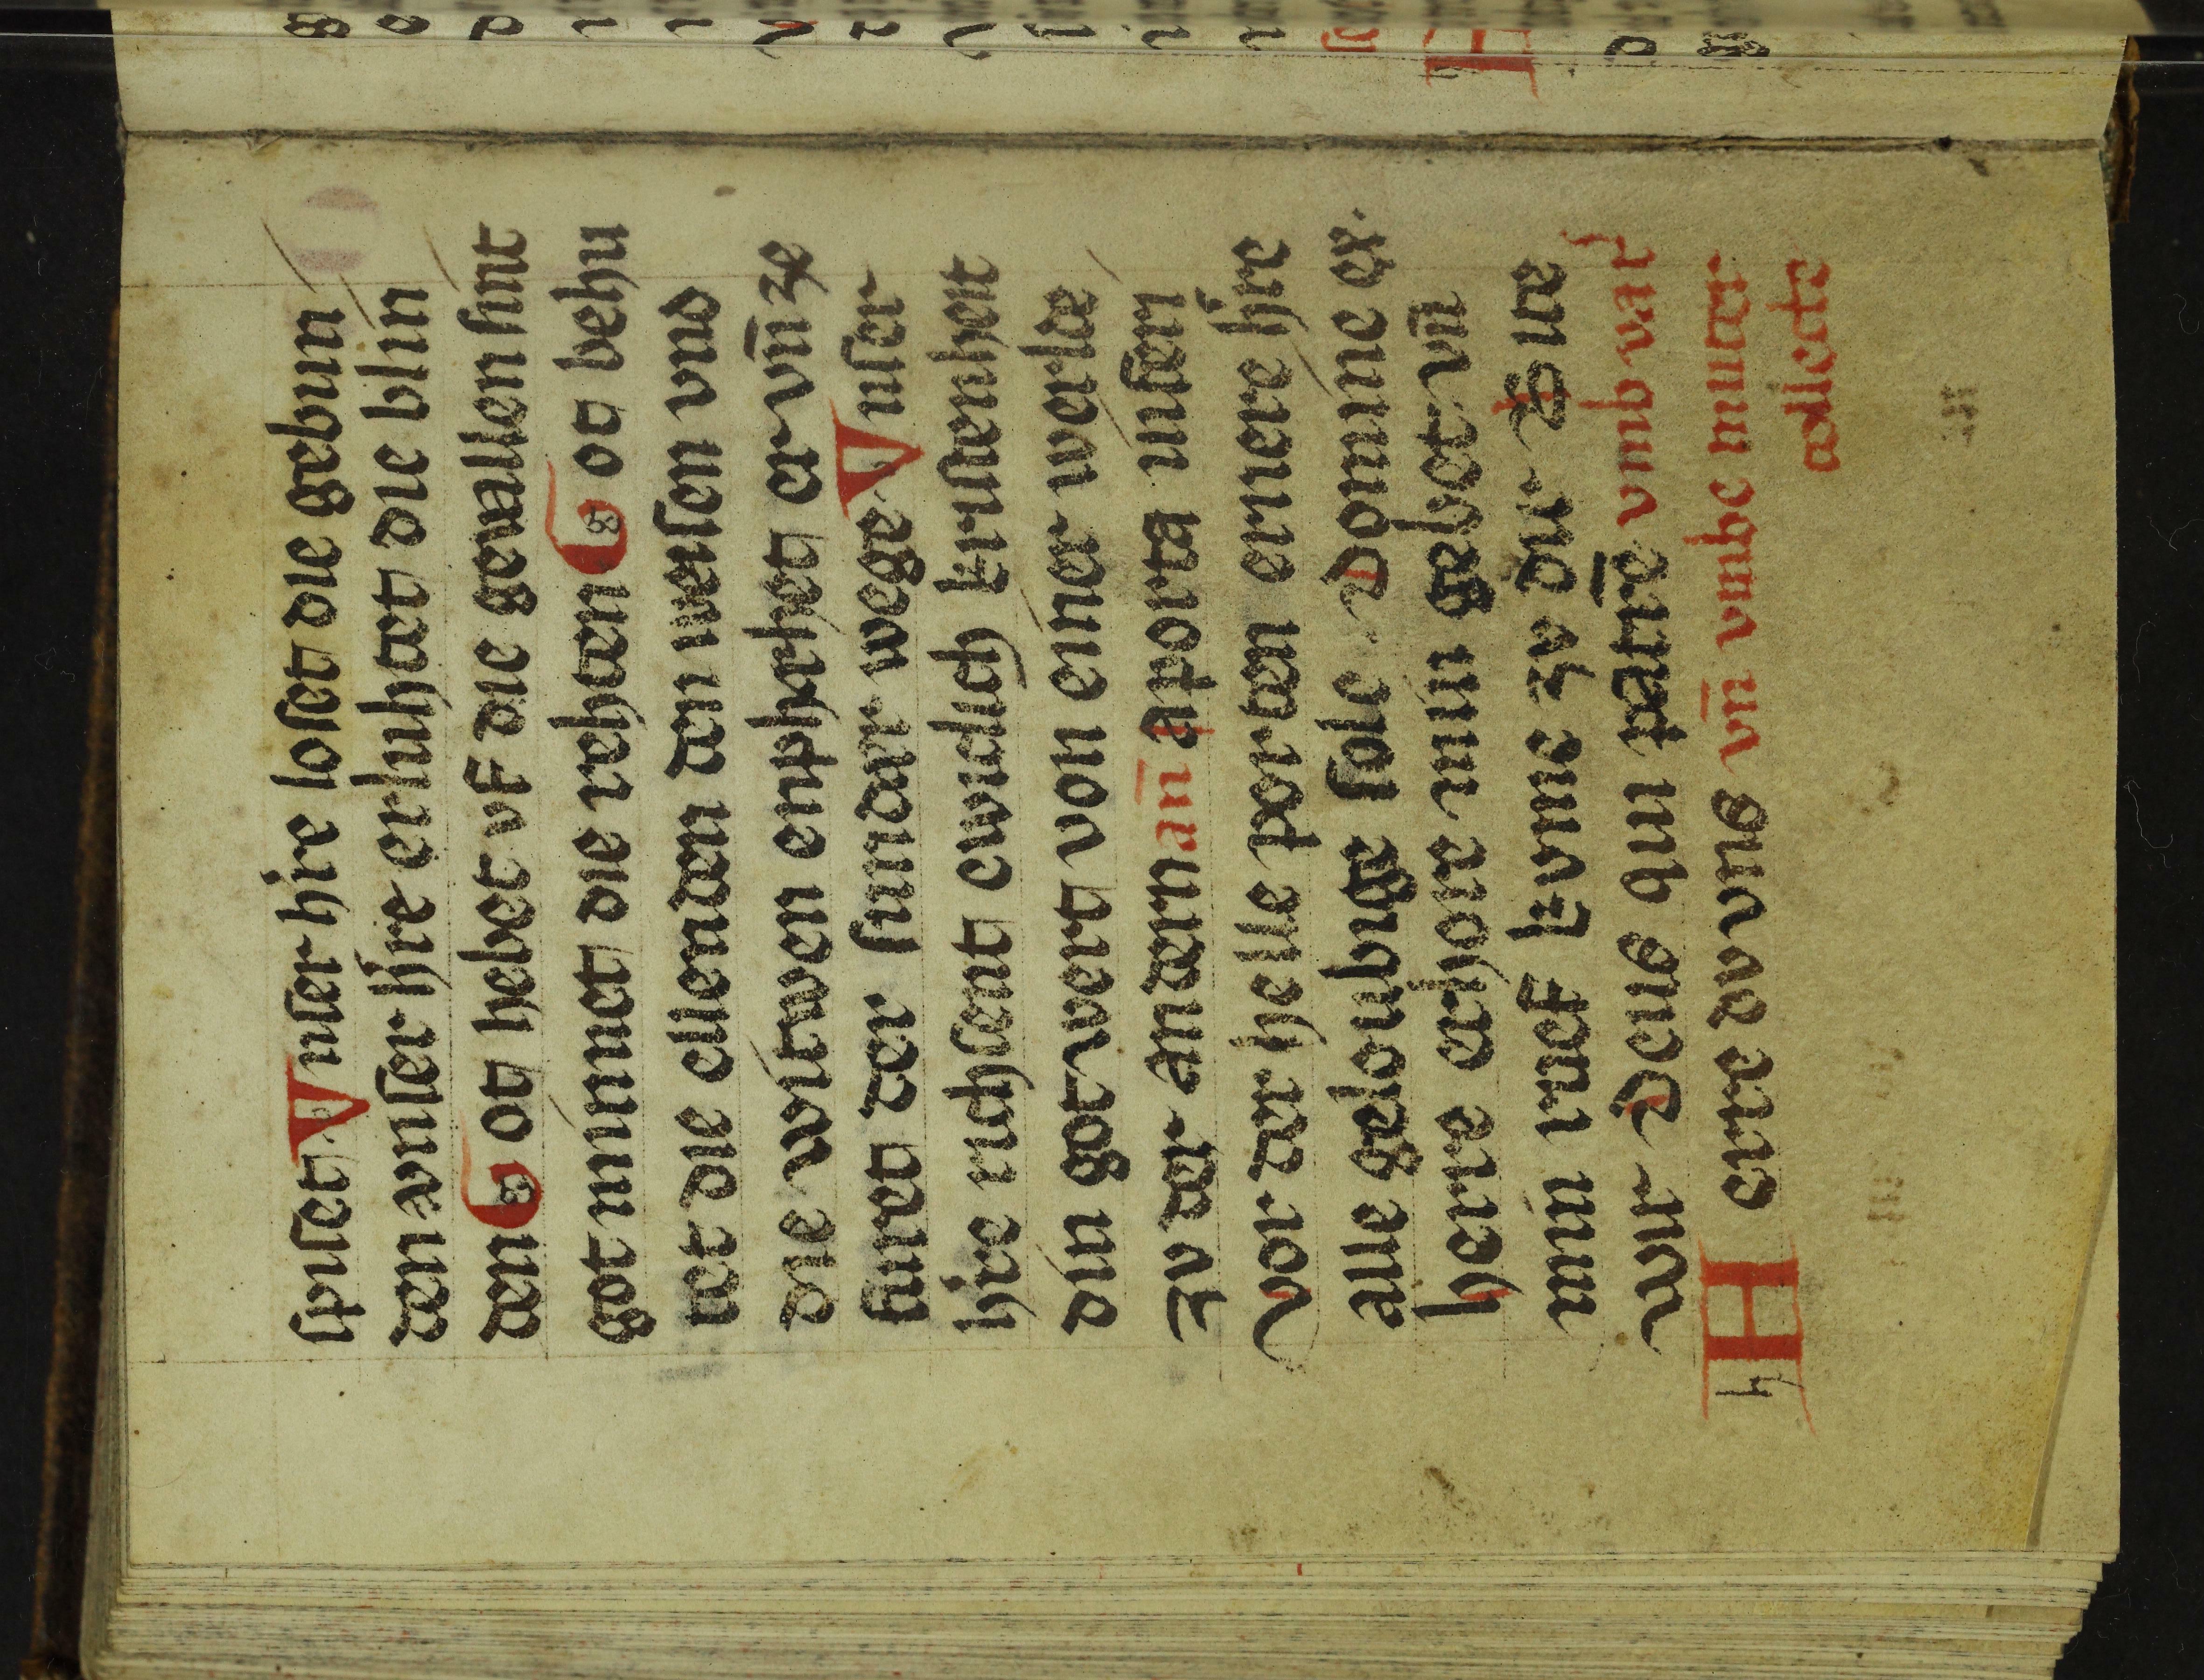 spiset Vnser h're loset die gebun
den vnser h're erluhtet die blin
den Got hebet vf die gevallen sint
got minnet die rehten Got behu
tet die ellenden den weisen vnd
die witwen enphehet er vn̄ ze
stæret der sunder wege Vnser
h're richsent ewiclich kristenheit
din got wert von einer werlde
zv der andern an̄ a porta inferi
Von der helle porten erner h're
alle geloubige sele Domine ex.
herre erhore min gebet vn̄
min ruof kvme zv dir Deus
wir Deus qui patrē vmb vat͛
Herre dv vns vn̄ vmbe muter
collecte